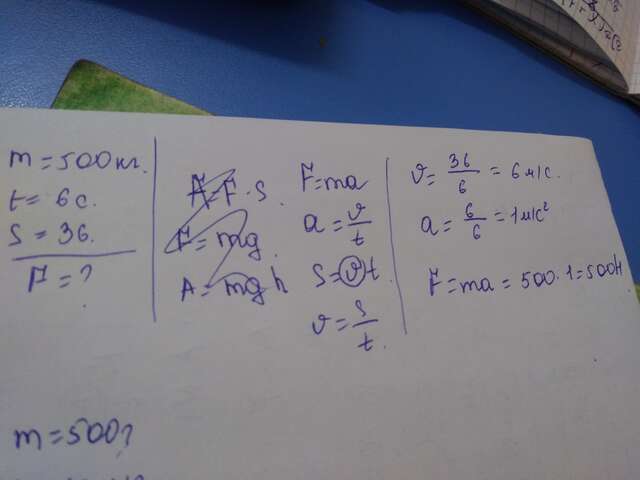 m = 500 кг.
t = 6 с.
S = 36.
F = ?
A = F · S.
F = mg.
A = mgh
F = ma
a = v/t
S = v t.
v = S/t.
v = 36/6 = 6 м/с.
a = 6/6 = 1 м/с²
F = ma = 500 · 1 = 500 Н
m = 500